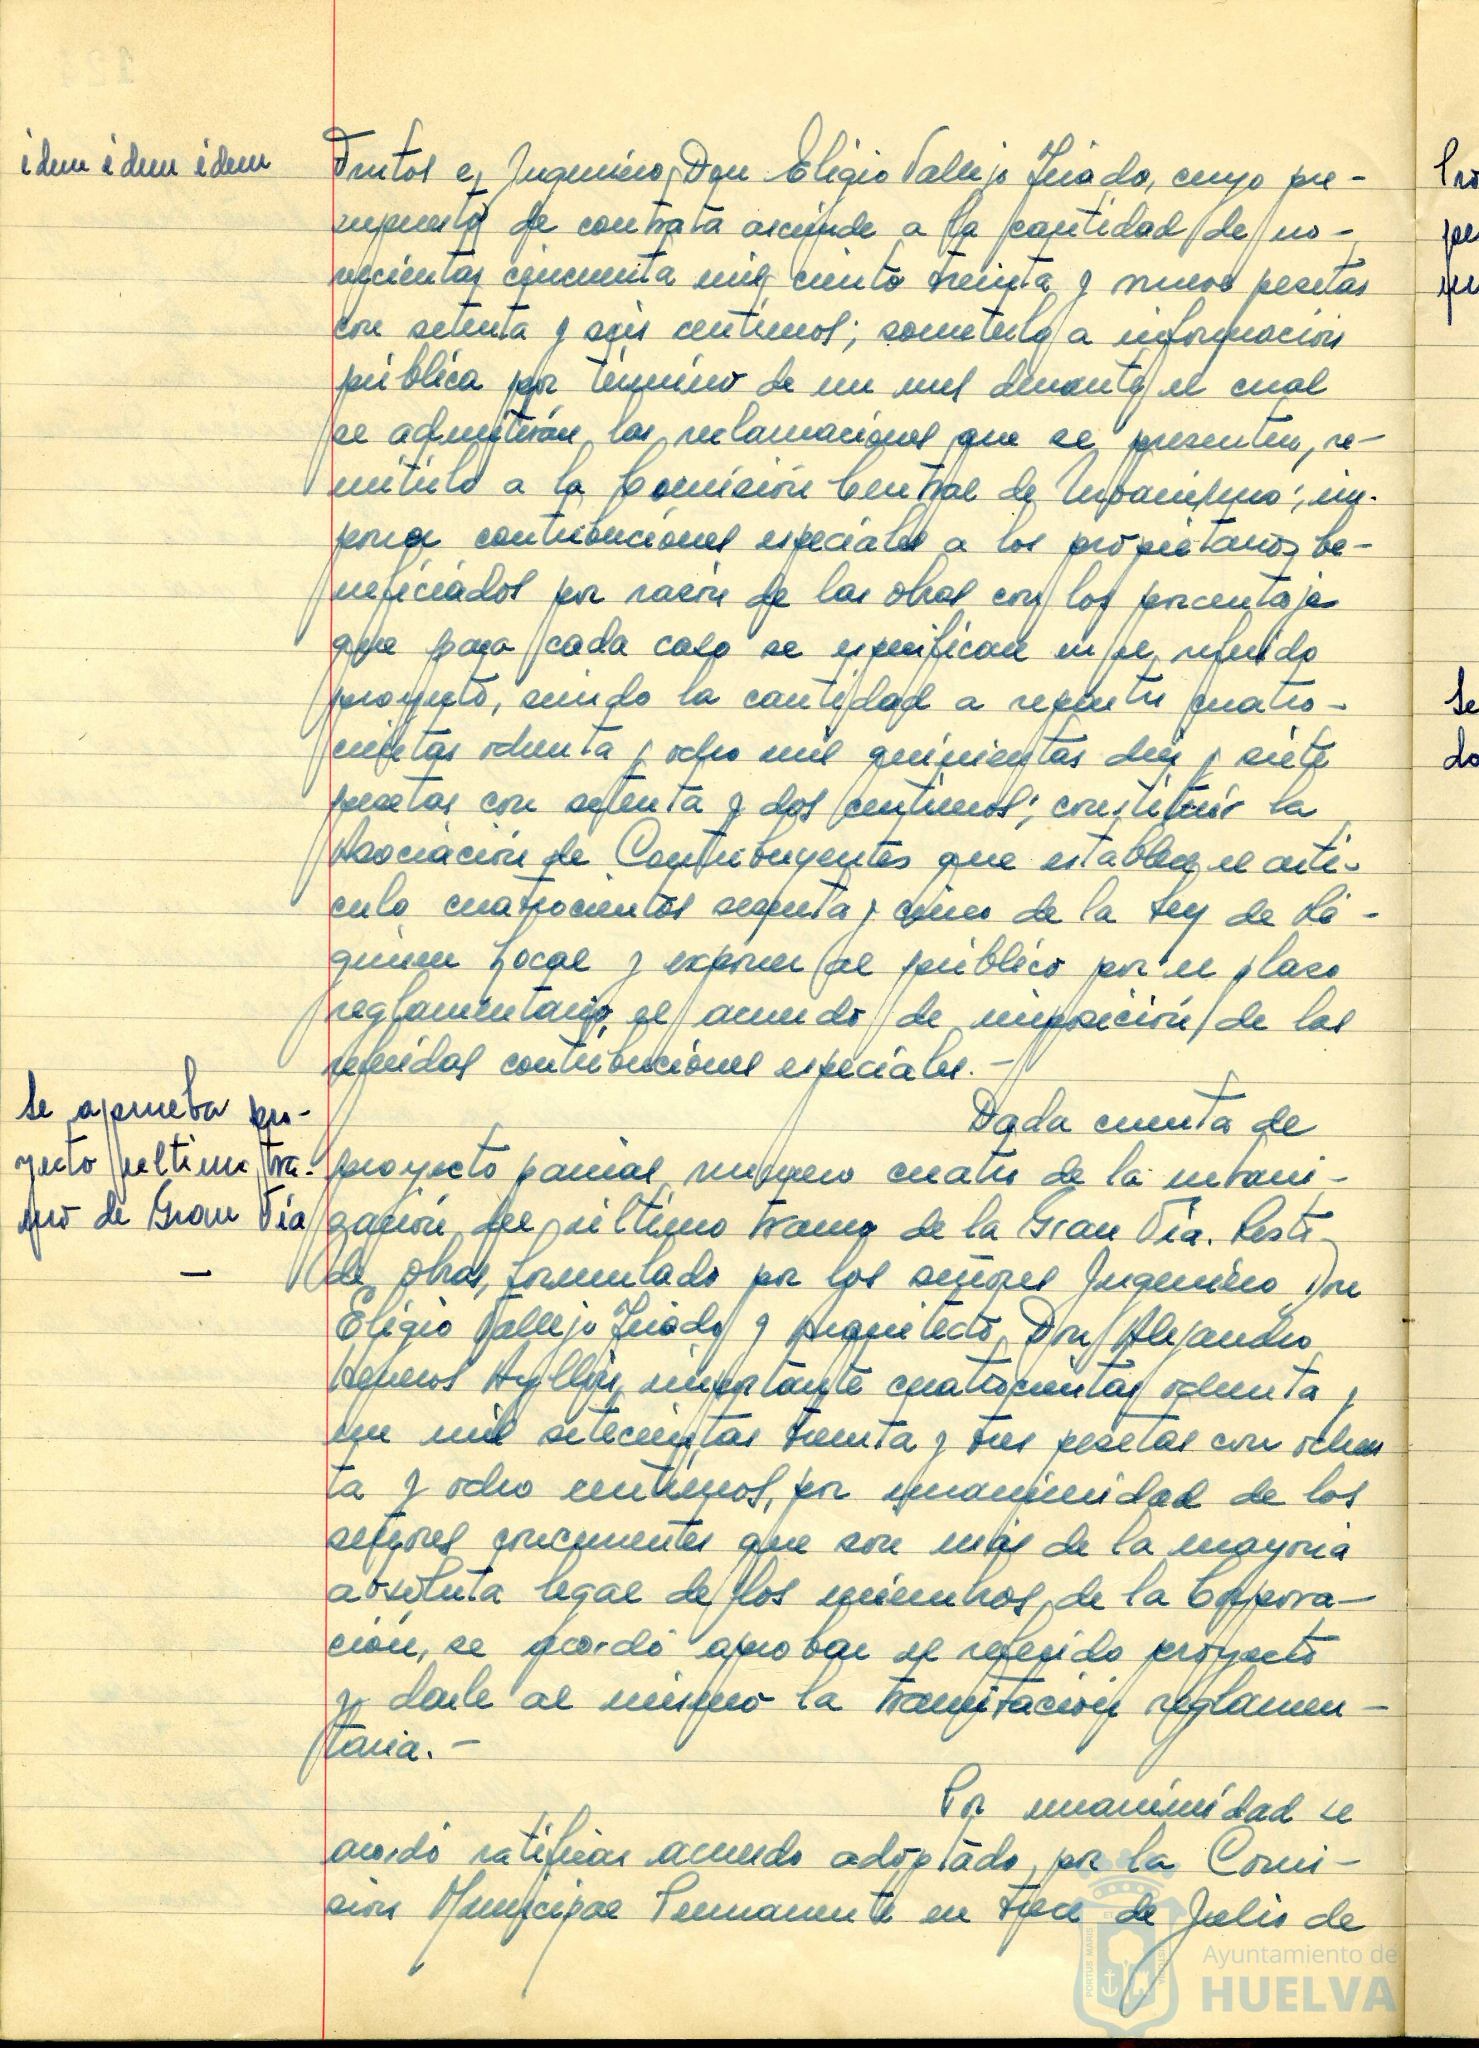 idem idem idem
Frutos e Ingeniero, Don Eligio Vallejo Triado, cuyo pre-
supuesto de contrata asciende a la cantidad de no-
vecientas cincuenta mil ciento treinta y nueve pesetas
con setenta y seis centimos; someterlo a información
pública por término de un mes durante el cual
se admitirán las reclamaciones que se presenten, re-
mitirlo a la Comisión Central de Urbanismo; im-
poner contribuciones especiales a los propietarios be-
neficiados por razón de las obras con los porcentajes
que para cada caso se especifican en el referido
proyecto, siendo la cantidad a repartir cuatro-
cientas ochenta y ocho mil quinientas diez y siete
pesetas con setenta y dos centimos; constituir la
Asociación de Contribuyentes que establece el arti-
culo cuatrocientos sesenta y cinco de la Ley de Ré-
gimen Local y exponer al público por el plazo
reglamentario, el acuerdo de imposición de las
referidas contribuciones especiales.-
Se aprueba pro-
yecto último tra-
mo de Gran Vía
-
Dada cuenta de
proyecto parcial número cuatro de la urbani-
zación del último tramo de la Gran Vía. Resto
de obras, formulado por los señores Ingeniero Don
Eligio Vallejo Triado y Arquitecto, Don Alejandro
Herreros Ayllón, importante cuatrocientas ochenta y
un mil setecientas treinta y tres pesetas con ochen
ta y ocho centimos, por unanimidad de los
señores concurrentes que son más de la mayoria
absoluta legal de los miembros de la Corpora-
ción, se acordó aprobar el referido proyecto
y darle al mismo la tramitación reglamen-
taria.-
Por unanimidad se
acordó ratificar acuerdo adoptado por la Comi-
sión Municipal Permanente en trece de Julio de
Ayuntamiento de
HUELVA
PORTUS MARIS
Se
do